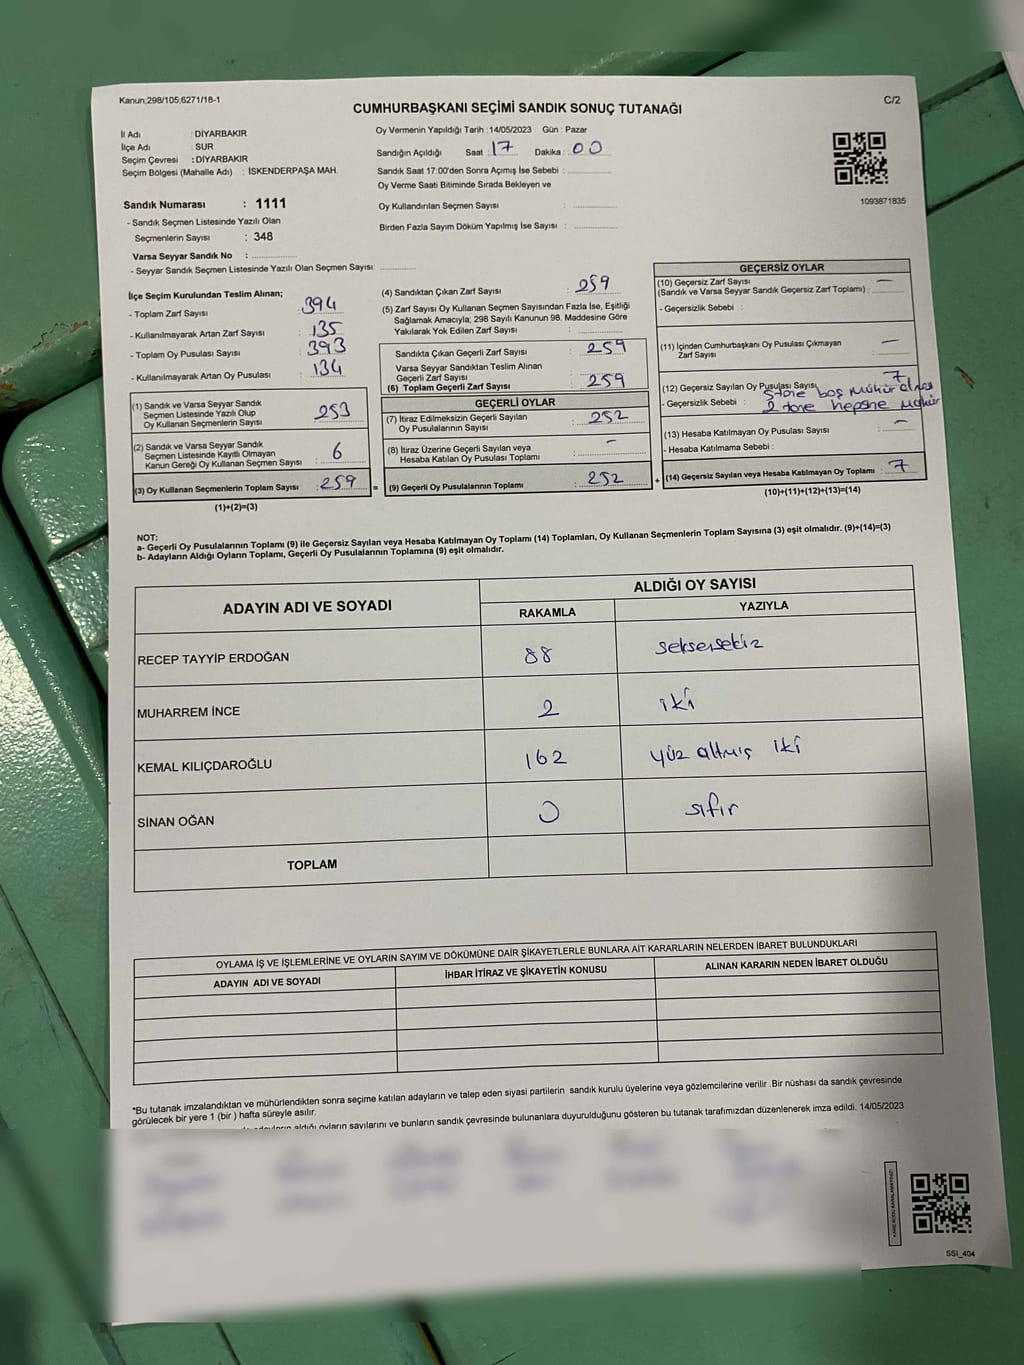 Kanun;298/105;6271/18-1
CUMHURBAŞKANI SEÇİMİ SANDIK SONUÇ TUTANAĞI
C/2
İl Adı : DİYARBAKIR
İlçe Adı : SUR
Seçim Çevresi : DİYARBAKIR
Seçim Bölgesi (Mahalle Adı) : İSKENDERPAŞA MAH.
Oy Vermenin Yapıldığı Tarih : 14/05/2023 Gün : Pazar
Sandığın Açıldığı Saat : 17 Dakika : 00
Sandık Saat 17:00'den Sonra Açımış İse Sebebi :
Oy Verme Saati Bitiminde Sırada Bekleyen ve
Oy Kullandırılan Seçmen Sayısı :
Birden Fazla Sayım Döküm Yapılmış İse Sayısı :
1093871835
Sandık Numarası : 1111
- Sandık Seçmen Listesinde Yazılı Olan
Seçmenlerin Sayısı : 348
Varsa Seyyar Sandık No :
- Seyyar Sandık Seçmen Listesinde Yazılı Olan Seçmen Sayısı:
İlçe Seçim Kurulundan Teslim Alınan;
- Toplam Zarf Sayısı : 394
- Kullanılmayarak Artan Zarf Sayısı : 135
- Toplam Oy Pusulası Sayısı : 393
- Kullanılmayarak Artan Oy Pusulası : 134
(1) Sandık ve Varsa Seyyar Sandık
Seçmen Listesinde Yazılı Olup
Oy Kullanan Seçmenlerin Sayısı : 253
(2) Sandık ve Varsa Seyyar Sandık
Seçmen Listesinde Kayıtlı Olmayan
Kanun Gereği Oy Kullanan Seçmen Sayısı : 6
(3) Oy Kullanan Seçmenlerin Toplam Sayısı : 259 =
(1)+(2)=(3)
(4) Sandıktan Çıkan Zarf Sayısı : 259
(5) Zarf Sayısı Oy Kullanan Seçmen Sayısından Fazla İse, Eşitliği
Sağlamak Amacıyla; 298 Sayılı Kanunun 98. Maddesine Göre
Yakılarak Yok Edilen Zarf Sayısı :
Sandıkta Çıkan Geçerli Zarf Sayısı : 259
Varsa Seyyar Sandıktan Teslim Alınan
Geçerli Zarf Sayısı :
(6) Toplam Geçerli Zarf Sayısı : 259
GEÇERLİ OYLAR
(7) İtiraz Edilmeksizin Geçerli Sayılan
Oy Pusulalarının Sayısı : 252
(8) İtiraz Üzerine Geçerli Sayılan veya
Hesaba Katılan Oy Pusulası Toplamı : -
(9) Geçerli Oy Pusulalarının Toplamı : 252 +
GEÇERSİZ OYLAR
(10) Geçersiz Zarf Sayısı
(Sandık ve Varsa Seyyar Sandık Geçersiz Zarf Toplamı) : -
- Geçersizlik Sebebi :
(11) İçinden Cumhurbaşkanı Oy Pusulası Çıkmayan
Zarf Sayısı : -
(12) Geçersiz Sayılan Oy Pusulası Sayısı : 7
- Geçersizlik Sebebi : 5 tane boş mühür
2 tane hepsine mühür
(13) Hesaba Katılmayan Oy Pusulası Sayısı : -
- Hesaba Katılmama Sebebi :
(14) Geçersiz Sayılan veya Hesaba Katılmayan Oy Toplamı : 7
(10)+(11)+(12)+(13)=(14)
NOT:
a- Geçerli Oy Pusulalarının Toplamı (9) ile Geçersiz Sayılan veya Hesaba Katılmayan Oy Toplamı (14) Toplamları, Oy Kullanan Seçmenlerin Toplam Sayısına (3) eşit olmalıdır. (9)+(14)=(3)
b- Adayların Aldığı Oyların Toplamı, Geçerli Oy Pusulalarının Toplamına (9) eşit olmalıdır.
ADAYIN ADI VE SOYADI
ALDIĞI OY SAYISI
RAKAMLA YAZIYLA
RECEP TAYYİP ERDOĞAN 88 seksensekiz
MUHARREM İNCE 2 iki
KEMAL KILIÇDAROĞLU 162 yüz altmış iki
SİNAN OĞAN 0 sıfır
TOPLAM
OYLAMA İŞ VE İŞLEMLERİNE VE OYLARIN SAYIM VE DÖKÜMÜNE DAİR ŞİKAYETLERLE BUNLARA AİT KARARLARIN NELERDEN İBARET BULUNDUKLARI
ADAYIN ADI VE SOYADI İHBAR İTİRAZ VE ŞİKAYETİN KONUSU ALINAN KARARIN NEDEN İBARET OLDUĞU
*Bu tutanak imzalandıktan ve mühürlendikten sonra seçime katılan adayların ve talep eden siyasi partilerin sandık kurulu üyelerine veya gözlemcilerine verilir .Bir nüshası da sandık çevresinde
görülecek bir yere 1 (bir ) hafta süreyle asılır.
aldığı oyların sayılarını ve bunların sandık çevresinde bulunanlara duyurulduğunu gösteren bu tutanak tarafımızdan düzenlenerek imza edildi. 14/05/2023
SSI_404